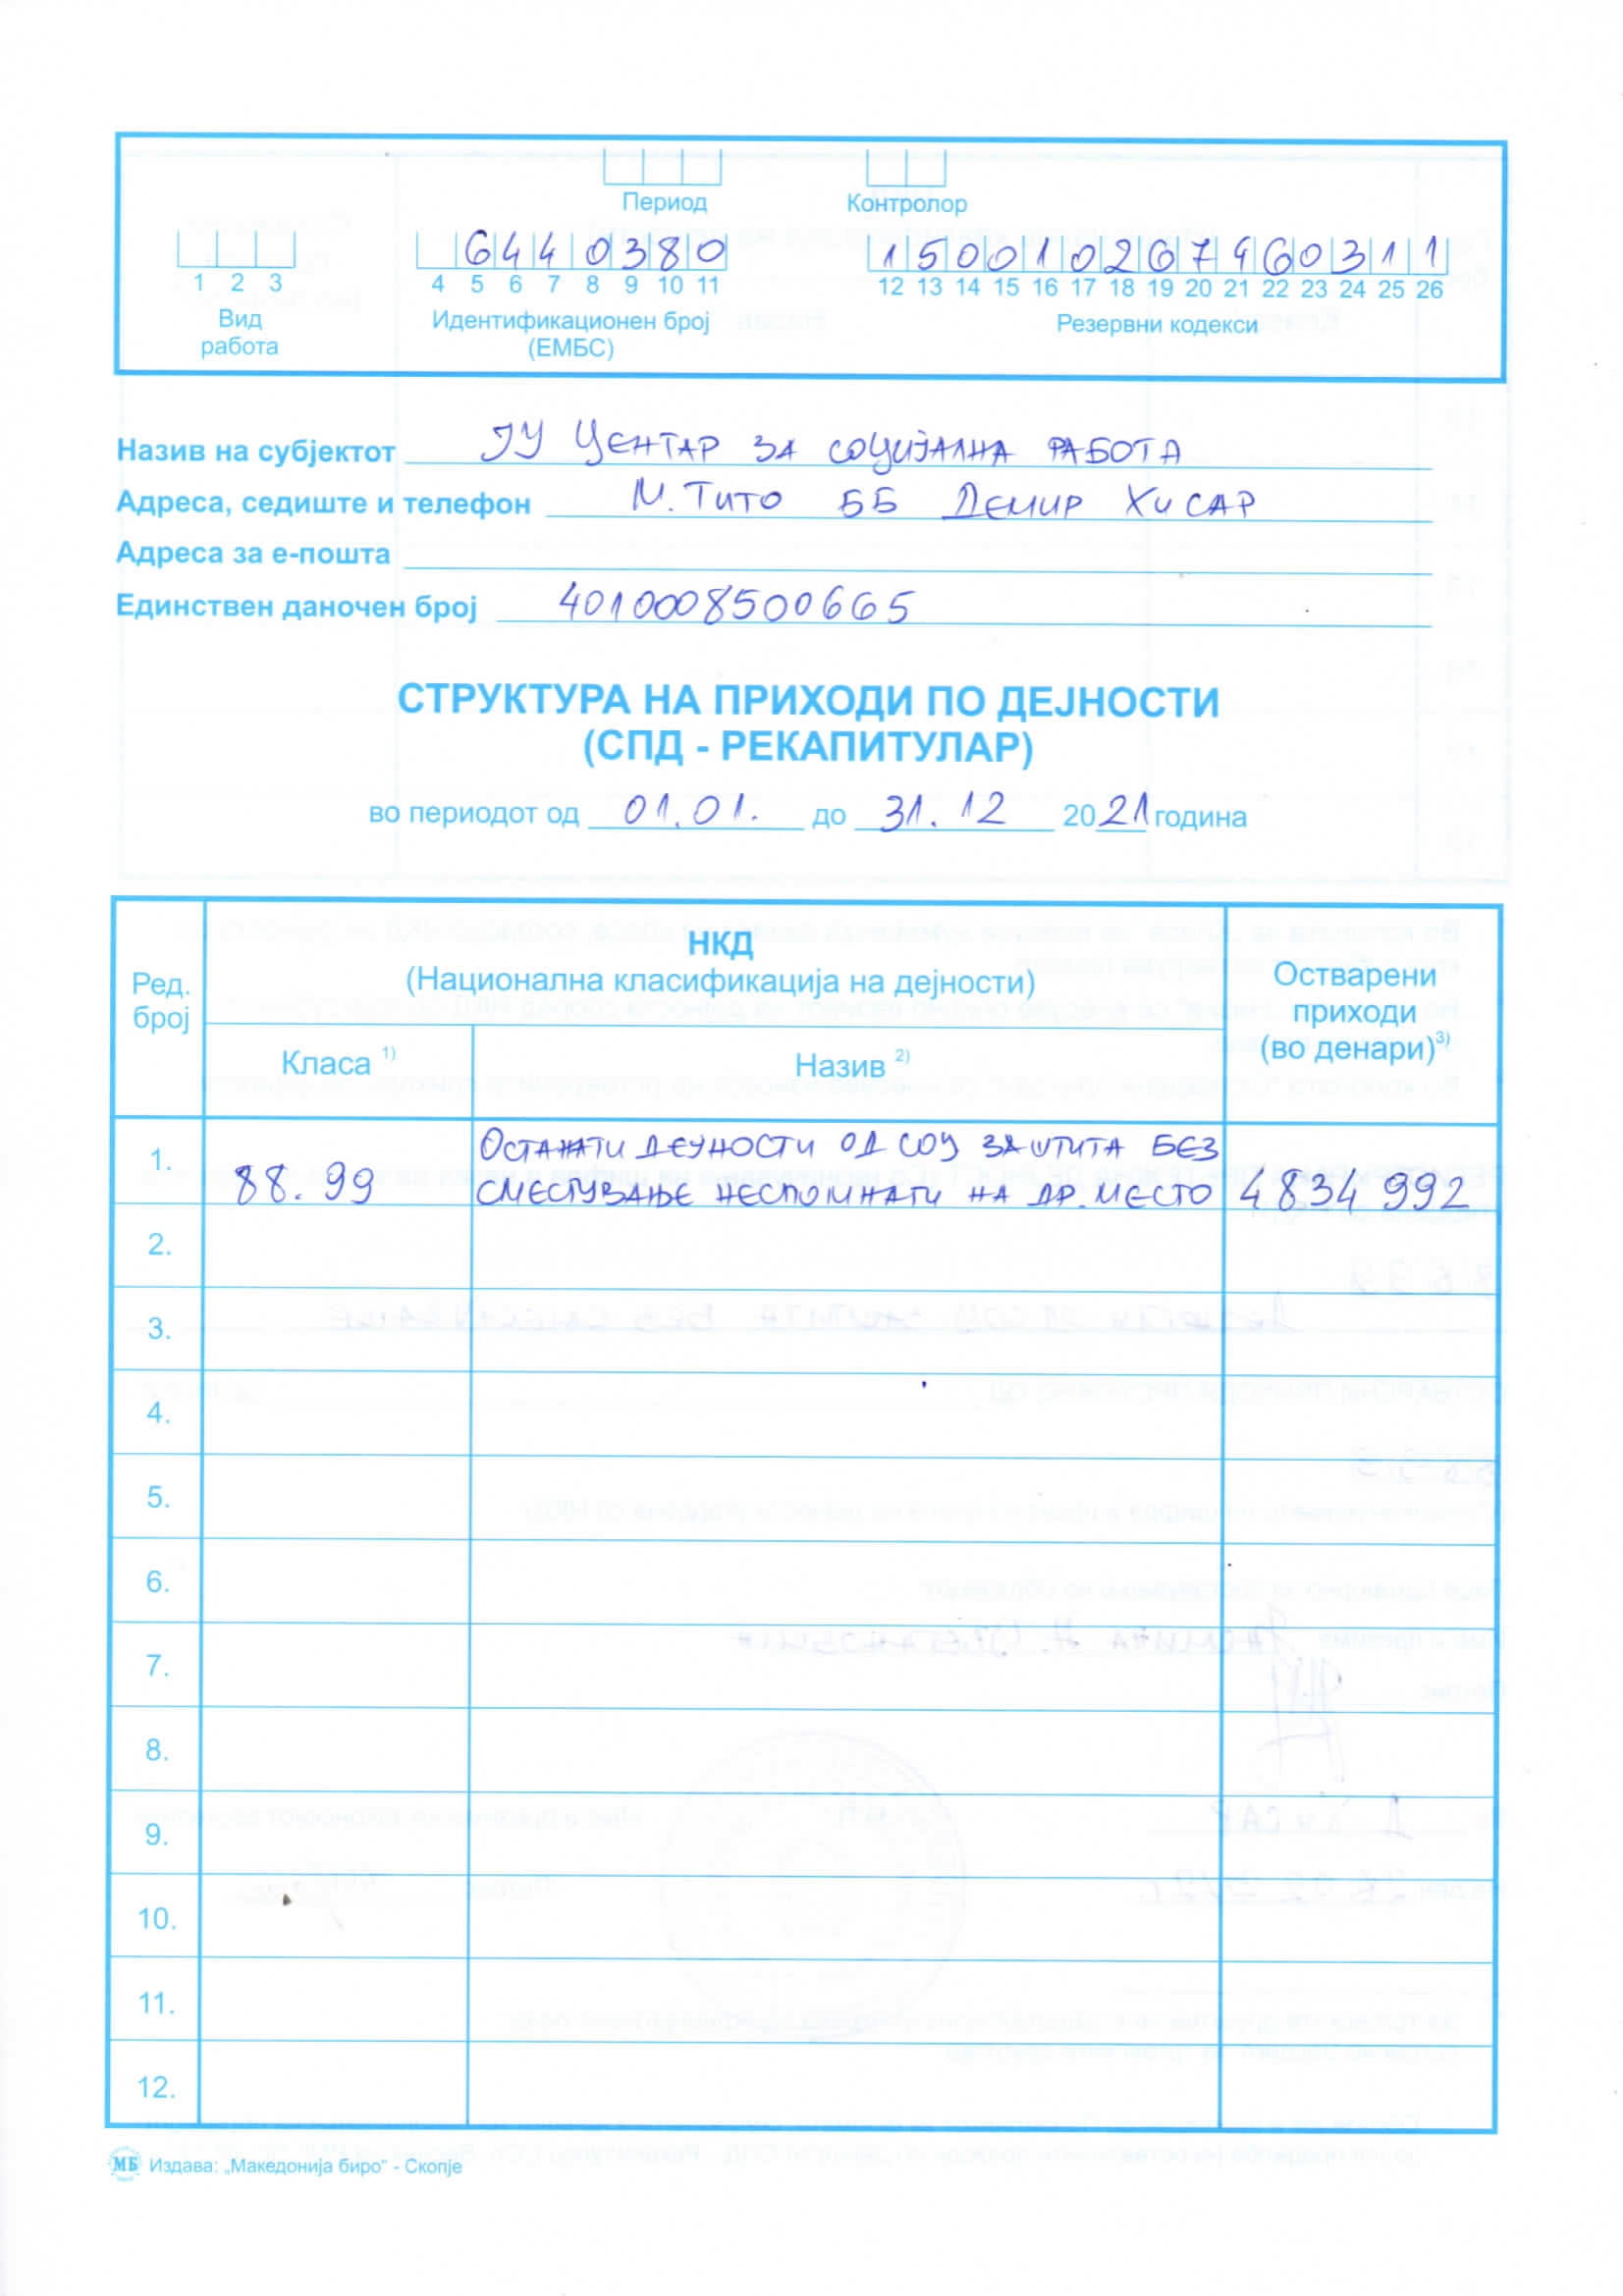 Период Контролор
6440380 150010267960311
1 2 3 4 5 6 7 8 9 10 11 12 13 14 15 16 17 18 19 20 21 22 23 24 25 26
Вид работа
Идентификационен број (ЕМБС)
Резервни кодекси
Назив на субјектот ЈУ ЦЕНТАР ЗА СОЦИЈАЛНА РАБОТА
Адреса, седиште и телефон М. ТИТО ББ ДЕМИР ХИСАР
Адреса за е-пошта
Единствен даночен број 4010008500665
СТРУКТУРА НА ПРИХОДИ ПО ДЕЈНОСТИ
(СПД - РЕКАПИТУЛАР)
во периодот од 01.01. до 31.12 2021 година
Ред. број
НКД
(Национална класификација на дејности)
Класа 1)
Назив 2)
Остварени
приходи
(во денари)3)
1. 88.99 ОСТАНАТИ ДЕЈНОСТИ ОД СОЦ ЗАШТИТА БЕЗ
СМЕСТУВАЊЕ НЕСПОМНАТИ НА ДР. МЕСТО 4834992
2.
3.
4.
5.
6.
7.
8.
9.
10.
11.
12.
МБ Издава: „Македонија биро“ - Скопје